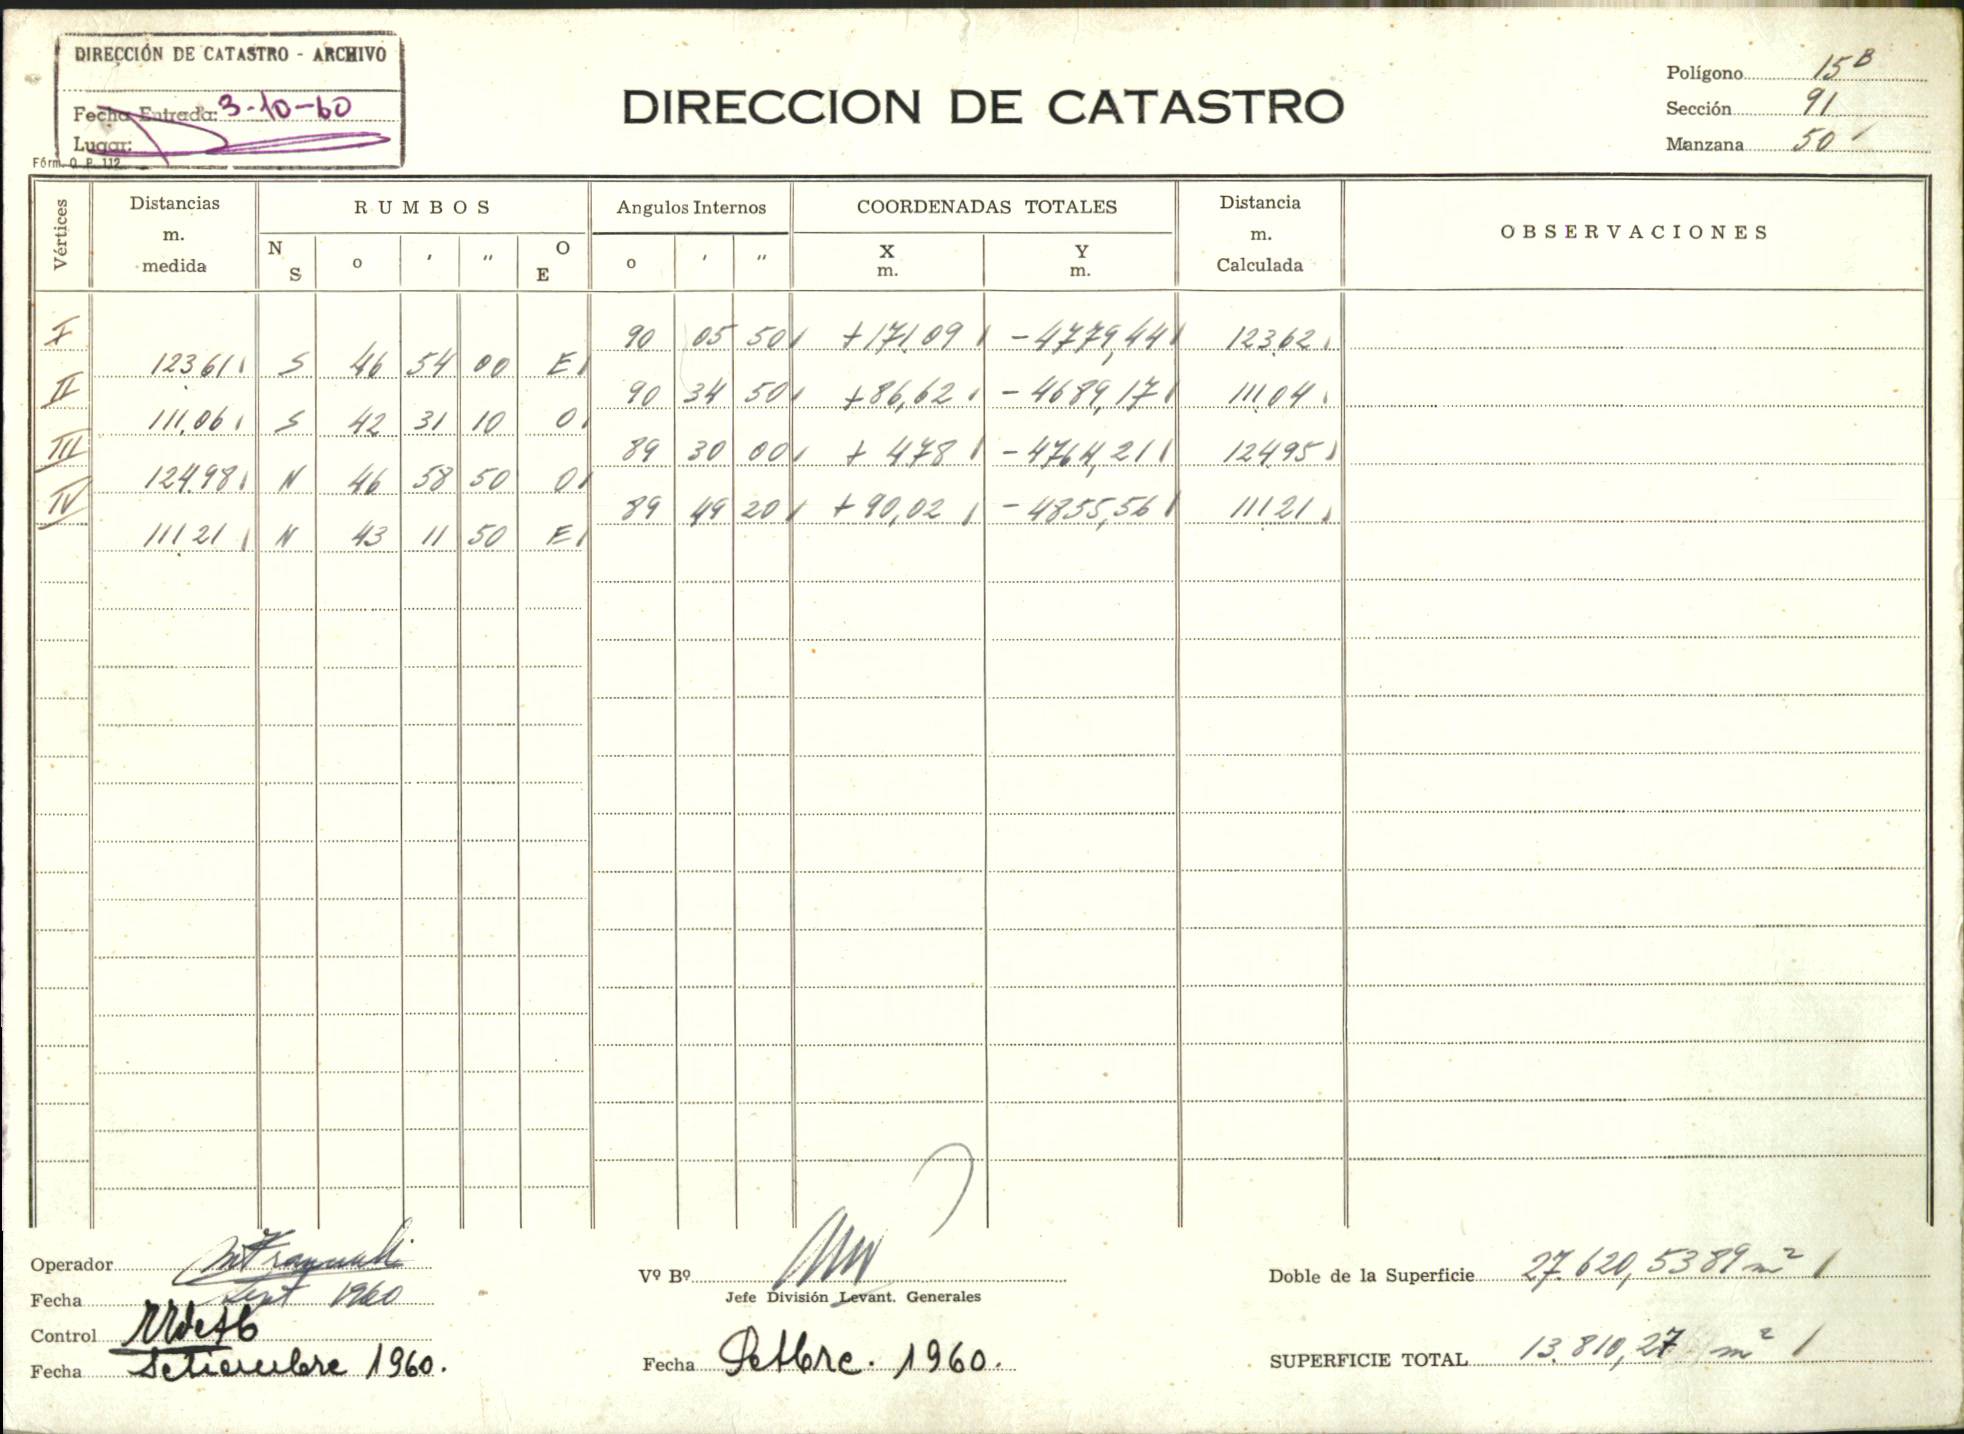 DIRECCIÓN DE CATASTRO - ARCHIVO
Fecha Entrada: 3-10-60
Lugar:
Fórm. O. P. 112
DIRECCION DE CATASTRO
Polígono 15 B
Sección 91
Manzana 50
Vértices Distancias m. medida RUMBOS N S o ' " O E Angulos Internos o ' " COORDENADAS TOTALES X m. Y m. Distancia m. Calculada OBSERVACIONES
I 90 05 50 +171,09 -4779,44 123,62
123,61 S 46 54 00 E
II 90 34 50 +86,62 -4689,17 111,04
111,06 S 42 31 10 O
III 89 30 00 + 4,78 -4764,21 124,95
124,98 N 46 58 50 O
IV 89 49 20 +90,02 -4855,56 111,21
111,21 N 43 11 50 E
Operador
Fecha Sept 1960
Control
Fecha Setiembre 1960.
Vº Bº
Jefe División Levant. Generales
Fecha Setbre. 1960.
Doble de la Superficie 27.620,5389 m²
SUPERFICIE TOTAL 13.810,27 m²